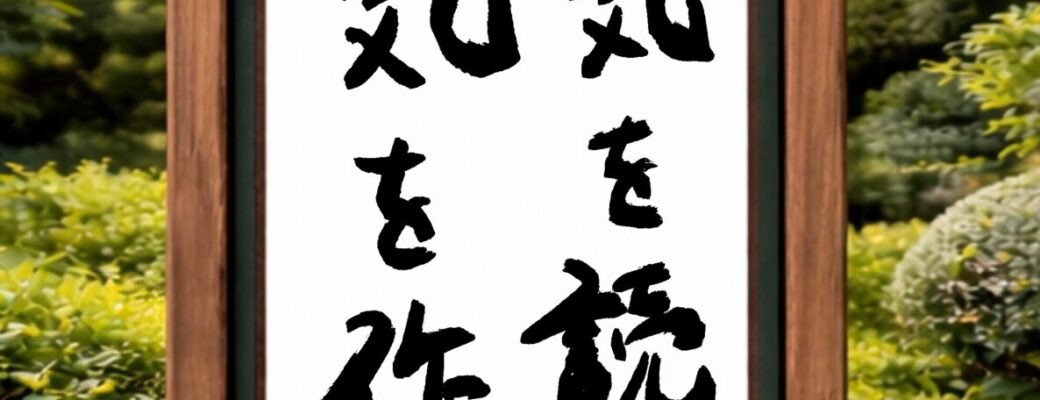 気を読
気を作